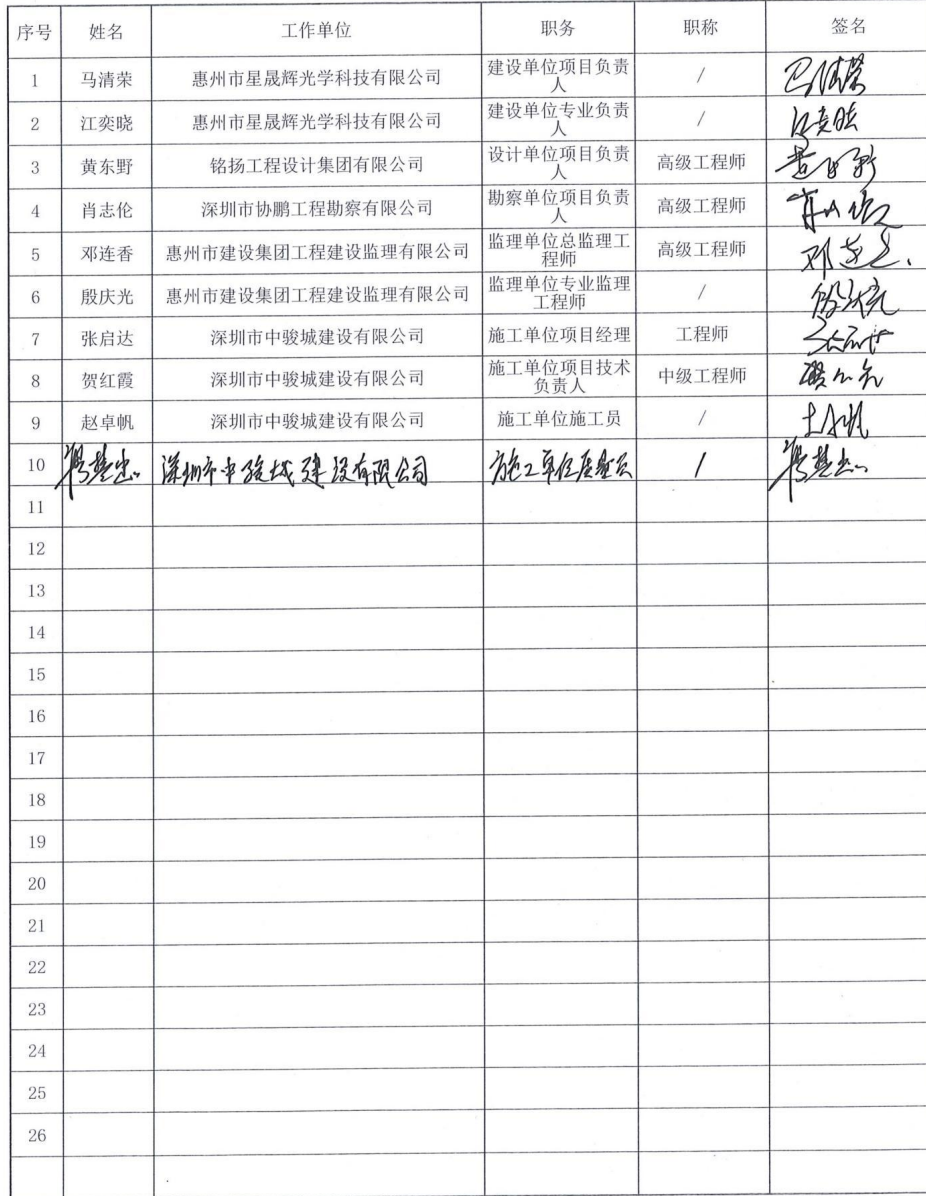 序号 姓名 工作单位 职务 职称 签名
1 马清荣 惠州市星晟辉光学科技有限公司 建设单位项目负责人 / 马清荣
2 江奕晓 惠州市星晟辉光学科技有限公司 建设单位专业负责人 /
3 黄东野 铭扬工程设计集团有限公司 设计单位项目负责人 高级工程师
4 肖志伦 深圳市协鹏工程勘察有限公司 勘察单位项目负责人 高级工程师
5 邓连香 惠州市建设集团工程建设监理有限公司 监理单位总监理工程师 高级工程师
6 殷庆光 惠州市建设集团工程建设监理有限公司 监理单位专业监理工程师 /
7 张启达 深圳市中骏城建设有限公司 施工单位项目经理 工程师
8 贺红霞 深圳市中骏城建设有限公司 施工单位项目技术负责人 中级工程师
9 赵卓帆 深圳市中骏城建设有限公司 施工单位施工员 /
10 深圳市中骏城建设有限公司 施工单位质量员 /
11
12
13
14
15
16
17
18
19
20
21
22
23
24
25
26